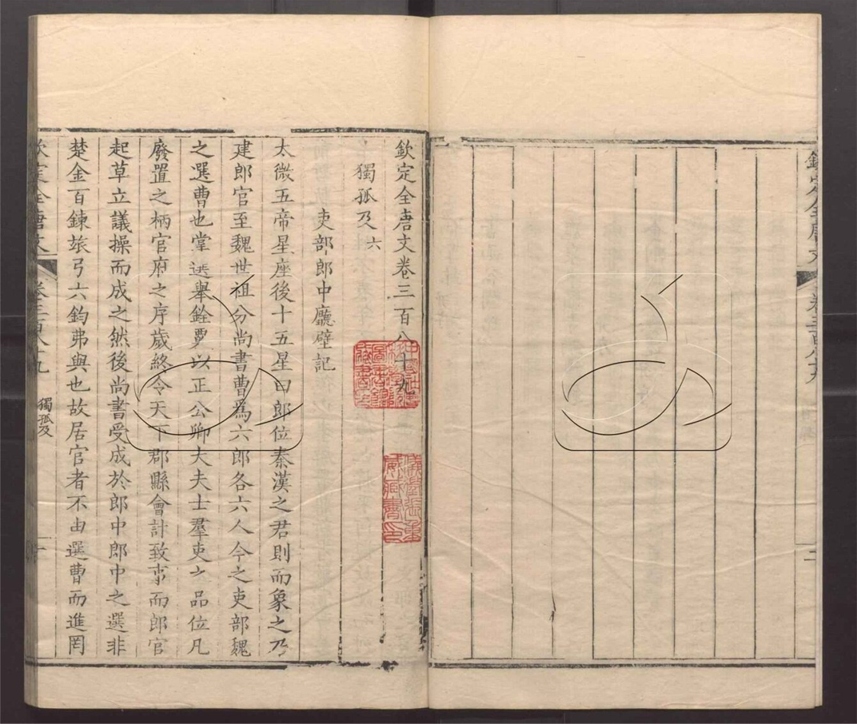 欽定全唐文卷三百八十九
獨孤及 六
吏部郎中廳壁記
太微五帝星座後十五星曰郎位秦漢之君則而象之乃
建郎官至魏世祖分尚書曹為六郎各六人今之吏部魏
之選曹也掌選舉銓覈以正公卿大夫士羣吏之品位凡
廢置之柄官府之序歲終令天下郡縣會計致事而郎官
起草立議操而成之然後尚書受成於郎中郎中之選非
楚金百鍊旅弓六鈞弗與也故居官者不由選曹而進罔
欽定全唐文 卷三百八十九 獨孤及